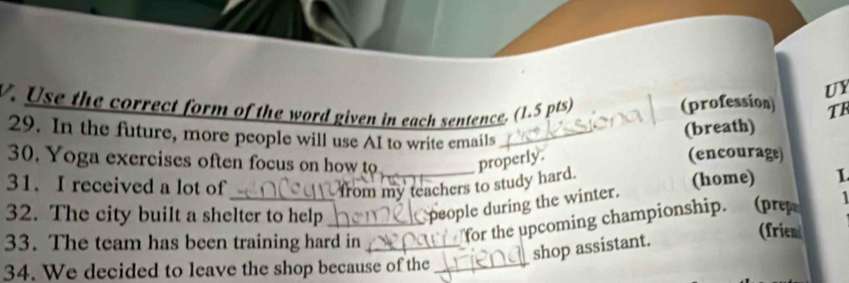 V. Use the correct form of the word given in each sentence. (1.5 pts)
29. In the future, more people will use AI to write emails professional (profession)
30. Yoga exercises often focus on how to ______ properly. (breath)
31. I received a lot of encourement from my teachers to study hard. (encourage)
32. The city built a shelter to help people during the winter. (home)
33. The team has been training hard in for the upcoming championship.
34. We decided to leave the shop because of the friend shop assistant.
UY
TR
I.
1